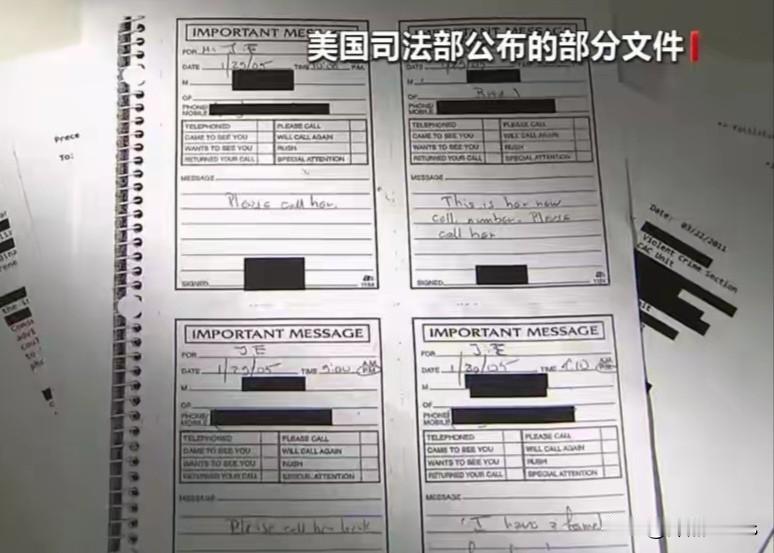 美国司法部公布的部分文件
IMPORTANT MESS
FOR Mr. J.E
DATE 1/25/05 TIME P.M.
M
OF
PHONE/
MOBILE
TELEPHONED PLEASE CALL
CAME TO SEE YOU WILL CALL AGAIN
WANTS TO SEE YOU RUSH
RETURNED YOUR CALL SPECIAL ATTENTION
MESSAGE
Please call her.
SIGNED
DATE
M
OF
PHONE/
MOBILE
TELEPHONED PLEASE CALL
CAME TO SEE YOU WILL CALL AGAIN
WANTS TO SEE YOU RUSH
RETURNED YOUR CALL SPECIAL ATTENTION
MESSAGE
This is her new
cell number. Please
call her
SIGNED
IMPORTANT MESSAGE
FOR J.E
DATE 1/29/05 TIME 5:00 AM PM
M
OF
PHONE/
MOBILE
TELEPHONED PLEASE CALL
CAME TO SEE YOU WILL CALL AGAIN
WANTS TO SEE YOU RUSH
RETURNED YOUR CALL SPECIAL ATTENTION
MESSAGE
Please call her back
IMPORTANT MESSAGE
FOR J.E
DATE 1/30/05 TIME AM PM
M
OF
PHONE/
MOBILE
TELEPHONED PLEASE CALL
CAME TO SEE YOU WILL CALL AGAIN
WANTS TO SEE YOU RUSH
RETURNED YOUR CALL SPECIAL ATTENTION
MESSAGE
"I have a
Prece
To:
Date: 03/22/2011
Violent Crime Section
CAC Unit